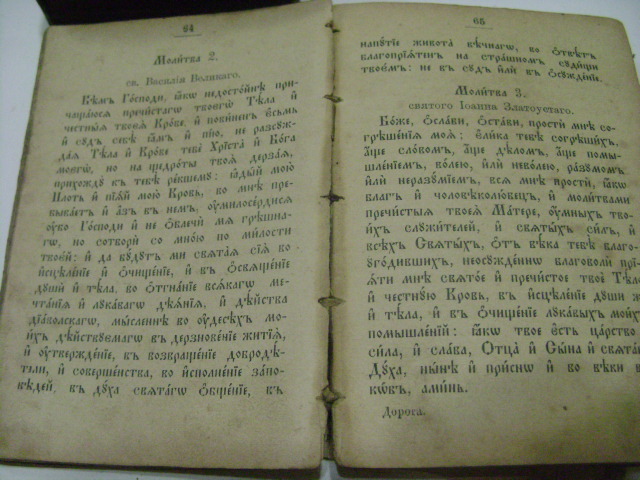 64
Моли́тва 2.
св. Васи́лія Вели́каго.
Вѣ́мъ Го́споди, ꙗ҆́кѡ недосто́йнѣ при-
чаща́юся пречи́стагѡ твоегѡ̀ Тѣ́ла и҆
честны́ѧ твоеѧ̀ Кро́ве, и҆ пови́ненъ є҆́смь
и҆ сꙋ́дъ себѣ̀ ꙗ҆́мъ и҆ пїю̀, не разсꙋж-
да́ѧ Тѣ́ла и҆ Кро́ве тебѐ Хрїста̀ и҆ Бо́га
моегѡ̀, но на щедрѡ́ты твоѧ̑ дерза́ѧ,
прихождꙋ̀ къ тебѣ̀ ре́кшемꙋ: ꙗ҆ды́й мою̀
Пло́ть и҆ пїѧ́й мою̀ Кро́вь, во мнѣ̀ пре-
быва́етъ и҆ а҆́зъ въ не́мъ, ᲂу҆милосе́рдисѧ
ᲂу҆̀бо Го́споди и҆ не ѡ҆бличѝ мѧ̀ грѣ́шна-
гѡ, но сотворѝ со мно́ю по ми́лости
твое́й: и҆ да бꙋ́дꙋтъ мѝ свѧта̑ѧ сїѧ̑ во
и҆сцѣле́нїе и҆ ѡ҆чище́нїе, и҆ въ ѡ҆свѧще́нїе
дꙋшѝ и҆ тѣ́ла, во ѿгна́нїе всѧ́кагѡ ме-
чта́нїѧ и҆ лꙋка́вагѡ дѣѧ́нїѧ, и҆ дѣ́йства
дїа́вольскагѡ, мы́сленнѣ во ᲂу҆десѣ́хъ мо-
и́хъ дѣ́йствꙋемагѡ въ дерзнове́нїе житїѧ̀,
и҆ ᲂу҆твержде́нїе, въ возвраще́нїе добродѣ́-
тели, и҆ соверше́нства, во и҆сполне́нїе за́по-
вѣдей, въ дꙋ́ха свѧта́гѡ ѡ҆бще́нїе, въ
65
напꙋ́тїе живота̀ вѣ́чнагѡ, во ѿвѣ́тъ
благопрїѧ́тенъ на стра́шномъ сꙋди́щи
твое́мъ: не въ сꙋ́дъ и҆лѝ въ ѡ҆сꙋжде́нїе.
Моли́тва 3.
свята́го Іоа́нна Златоу́стаго.
Бо́же, ѡ҆сла́би, ѡ҆ста́ви, простѝ мнѣ̀ со-
грѣше́нїѧ моѧ̑: є҆ли̑ка тебѣ̀ согрѣши́хъ,
а҆́ще сло́вомъ, а҆́ще дѣ́ломъ, а҆́ще помы-
шле́нїемъ, во́лею, и҆лѝ нево́лею, ра́зꙋмомъ
и҆лѝ неразꙋ́мїемъ, всѧ̑ мнѣ̀ простѝ, ꙗ҆́кѡ
бла́гъ и҆ человѣколю́бецъ, и҆ моли́твами
пречи́стыѧ твоеѧ̀ Ма́тере, ᲂу҆́мныхъ тво-
и́хъ слꙋжи́телей, и҆ свѧты́хъ си́лъ, и҆
всѣ́хъ Свѧты́хъ, ѿ вѣ́ка тебѣ̀ благо-
ᲂу҆годи́вшихъ, неѡсꙋжде́ннѡ благоволѝ прїѝ-
ѧ́ти мнѣ̀ свѧто́е и҆ пречи́стое твоѐ Тѣ́ло
и҆ честнꙋ́ю Кро́вь, въ и҆сцѣле́нїе дꙋшѝ же
и҆ тѣ́ла, и҆ въ ѡ҆чище́нїе лꙋка́выхъ мои́хъ
помышле́нїй: ꙗ҆́кѡ твоѐ є҆́сть ца́рство,
си́ла, и҆ сла́ва, Отца̀ и҆ Сы́на и҆ свѧта́гѡ
Дꙋ́ха, ны́нѣ и҆ при́снѡ и҆ во вѣ́ки вѣ-
кѡ́въ, а҆ми́нь.
Доро́га.